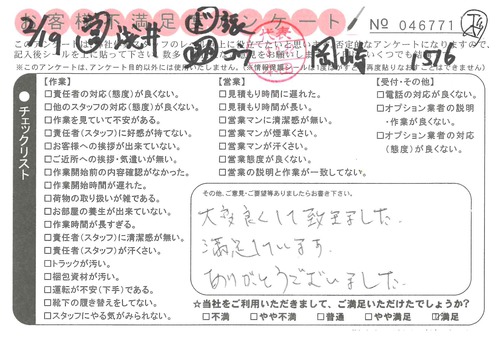 お客様不満足度アンケート!
№ 046771
2/19 司 浅井
岡崎 1576
※このアンケートは、アンケート目的以外には使用いたしません。
チェックリスト
【作業】
□責任者の対応(態度)が良くない。
□他のスタッフの対応(態度)が良くない。
□作業を見ていて不安がある。
□責任者(スタッフ)に好感が持てない。
□お客様への挨拶が出来ていない。
□ご近所への挨拶・気遣いが無い。
□作業開始前の内容確認がなかった。
□作業開始時間が遅れた。
□荷物の取り扱いが雑である。
□お部屋の養生が出来ていない。
□作業時間が長すぎる。
□責任者(スタッフ)に清潔感が無い。
□責任者(スタッフ)が汗くさい。
□トラックが汚い。
□梱包資材が汚い。
□運転が不安(下手)である。
□靴下の履き替えをしてない。
□スタッフにやる気がみられない。
【営業】
□見積もり時間に遅れた。
□見積もり時間が長い。
□営業マンに清潔感が無い。
□営業マンが煙草くさい。
□営業マンが汗くさい。
□営業態度が良くない。
□営業の説明と作業が一致してない。
【受付・その他】
□電話の対応が良くない。
□オプション業者の説明
・作業が良くない。
□オプション業者の対応
(態度)が良くない。
その他、ご意見・ご要望等ありましたらお書き下さい。
大変良くして頂きました。
満足しています。
ありがとうございました。
☆当社をご利用いただきまして、ご満足いただけたでしょうか?
□不満 □やや不満 □普通 □やや満足 ☑満足